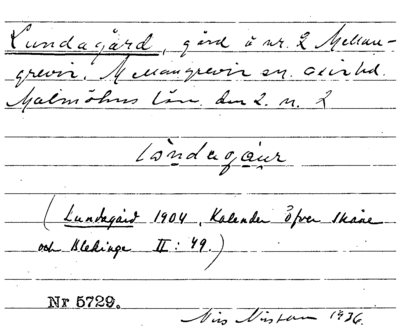 Lundagård, gård å nr. 2 Mellan-
grevie. Mellangrevie sn. Oxie hd.
Malmöhus län. den 2. n. 2
(Lundagård 1904, Kalender öfver Skåne
och Blekinge II: 49.)
Nr 5729.
Nils 1936.